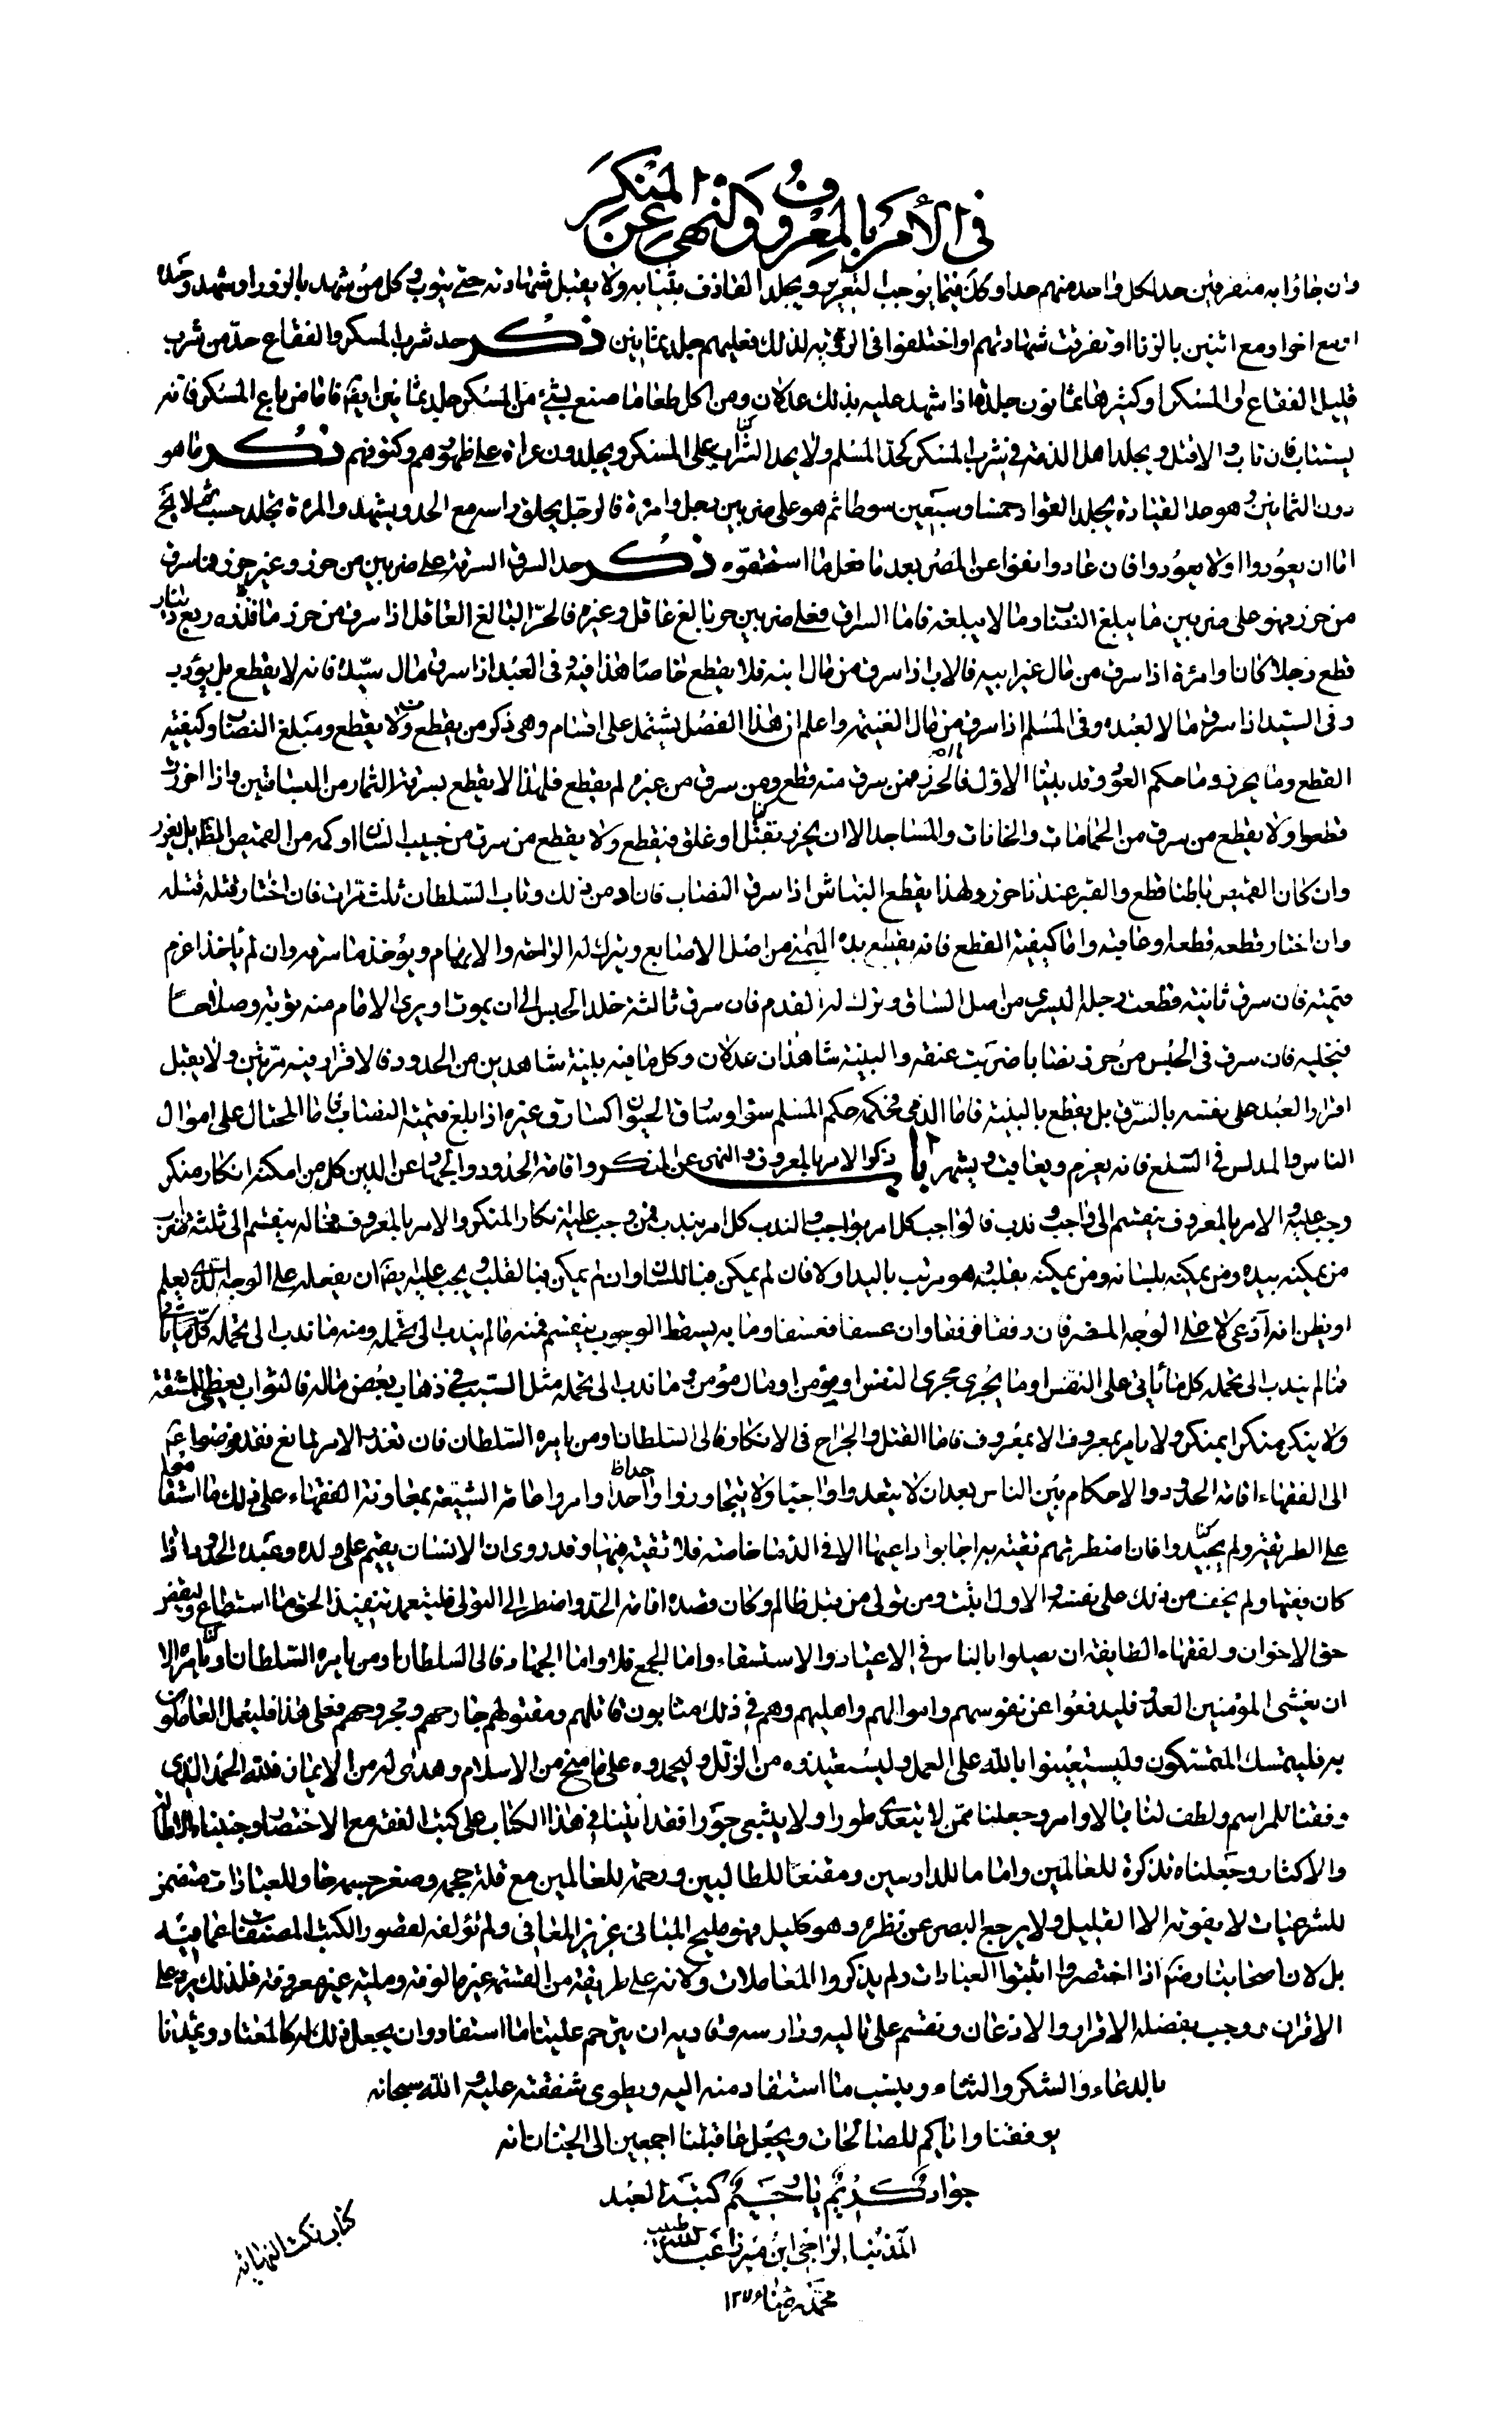 في الأمر بالمعروف والنهي عن المنكر
وان جاؤا به متفرقين حد لكل واحد منهم حدا وكل فيما يوجب التعزير ويجلد القاذف بثيابه ولا يقبل شهادته حتى يتوب وكل من شهد بالزور او شهد وحده
او مع اخر او مع اثنين بالزنا او تفرقت شهادتهم او اختلفوا في الرؤية لذلك فعليهم جلد ثمانين ذكر حد شرب المسكر والفقاع حد من شرب
قليل الفقاع او المسكر او كثيرهما ثمانون جلدة اذا شهد عليه بذلك عدلان ومن اكل طعاما صنع بشئ من المسكر جلد ثمانين ايضا فاما من باع المسكر فانه
يستتاب فان تاب والا قتل ويجلد اهل الذمة في شرب المسكر كحد المسلم ولا يحد الشارب على المسكر ويجلدون عراة على ظهورهم وكتوفهم ذكر ما هو
دون الثمانين وهو حد القيادة يجلد القواد خمسا وسبعين سوطا ثم هو على ضربين رجل وامرة فالرجل يحلق راسه مع الحد ويشهر والمرة تجلد حسب ثم لا يخ
اما ان يعودوا او لا يعودوا فان عادوا نفوا عن المصر بعد ما فعل ما استحقوه ذكر حد السرق السرقة على ضربين من حرز وغير حرز فما سرق
من حرز فهو على ضربين ما يبلغ النصاب وما لا يبلغه فاما السارق فعلى ضربين حر بالغ عاقل وغيره فالحر البالغ العاقل اذا سرق من حرز ما قدره ربع دينار
قطع رجلا كان او امرة اذا سرق من مال غير ابنه فالاب اذا سرق من مال ابنه فلا يقطع خاصا هذا فيه وفي العبد اذا سرق مال سيده فانه لا يقطع بل يؤدب
وفي السيد اذا سرق مالا لعبده وفي المسلم اذا سرق من مال الغنيمة واعلم ان هذا الفصل يشتمل على اقسام وهي ذكر من يقطع ومن لا يقطع ومبلغ النصاب وكيفية
القطع وما يحرز وما حكم العود وقد بينا الاول فالحرز فمن سرق منه قطع ومن سرق من غيره لم يقطع فلهذا لا يقطع بسرقة الثمار من البساتين واذا احرزت
قطعوا ولا يقطع من سرق من الحمامات والخانات والمساجد الا ان يحرز بقفل او غلق فيقطع ولا يقطع من سرق من جيب انسان او كمه من القميص الظاهر بل يعزر
وان كان القميص باطنا قطع والقبر عندنا حرز ولهذا يقطع النباش اذا سرق النصاب فان ادمن ذلك وفات السلطان ثلث مرات فان اختار قتله قتله
وان اختار قطعه قطعه او عاقبه واما كيفية القطع فانه يقطع يده اليمنى من اصل الاصابع ويترك له الراحة والابهام ويؤخذ ما سرقه وان لم يأخذ اغرم
قيمته فان سرق ثانية قطعت رجله اليسرى من اصل الساق وترك له القدم فان سرق ثالثة خلد الحبس الى ان يموت او يرى الامام منه توبة وصلاحا
فيخليه فان سرق في الحبس من حرز نصابا ضربت عنقه والبينة شاهدان عدلان وكل ما فيه بينة شاهدين من الحدود فالاقرار فيه مرتين ولا يقبل
اقرار العبد على نفسه بالسرق بل يقطع بالبينة فاما الذمي فحكمه حكم المسلم سواء وساق الحيوان كسارق غيره اذا بلغ قيمته النصاب فاما المحتال على اموال
الناس والمدلس في السلع فانه يغرم ويعاقب ويشهر باب ذكر الامر بالمعروف والنهي عن المنكر واقامة الحدود والجهاد عن الدين كل من امكنه انكار منكر
وجب عليه والامر بالمعروف ينقسم الى واجب وندب فالواجب كل امر بواجب والندب كل امر بندب فمن وجب عليه انكار المنكر والامر بالمعروف فحاله ينقسم الى ثلثة اضرب
من يمكنه بيده ومن يمكنه بلسانه ومن يمكنه بقلبه وهو مرتب باليد اولا فان لم يمكن فباللسان وان لم يمكن فبالقلب ويجب عليه ايضا ان يفعله على الوجه الذي يعلم
او يظن انه ادعى لا على الوجه المنفر فان رفقا فرفقا وان عسفا فعسفا وما به يسقط الوجوب ينقسم فمنه ما لم يندب الى تحمله ومنه ما ندب الى تحمله
فما لم يندب الى تحمله كل ما يأتي على النفس او ما يجري مجرى النفس او مؤمن او مال مؤمن وما ندب الى تحمله مثل السب في ذهاب بعض ماله فالثواب يعظم للمشقة
ولا ينكر منكرا بمنكر ولا يامر بمعروف الا بمعروف فاما القتل والجراح في الانكار فالى السلطان او من يامره السلطان فان تعذر الامر لمانع فقد فوضوا ع
الى الفقهاء اقامة الحدود والاحكام بين الناس بعد ان لا يتعدوا واجبا ولا يتجاوزوا حدا وامروا عامة الشيعة بمعاونة الفقهاء على ذلك ما استقاموا
على الطريقة ولم يحيدوا فان اضطرتهم تقية به اجابوا داعيها الا في الدماء خاصة فلا تقية فيها وقد روي ان الانسان يقيم على ولده وعبده الحدود اذا
كان فقيها ولم يخف من ذلك على نفسه والاول اثبت ومن تولى من قبل ظالم وكان قصده اقامة الحق او اضطر الى التولي فليتعمد تنفيذ الحق ما استطاع وليقض
حق الاخوان ولفقهاء الطايفة ان يصلوا بالناس في الاعياد والاستسقاء واما الجمع فلا واما الجهاد فالى السلطان او من يامره السلطان الا
ان يغشى المؤمنين العدو فليدفعوا عن نفوسهم واموالهم واهليهم وهم في ذلك مثابون قاتلهم ومقتولهم جارحهم ومجروحهم فعلى هذا فليعمل العاملون
به فليتمسك المتمسكون وليستعينوا بالله على العمل وليستعيذوه من الزلل وليحمدوه على ما منح من الاسلام وهدى له من الايمان فلله الحمد الذي
وفقنا للمراسم ولطف لنا بالاوامر وجعلنا ممن لا يتعدى طورا ولا يتبع جورا فقد اتينا في هذا الكتاب على كتب الفقه مع الاختصار وجنبناه الاطالة
والاكثار وجعلناه تذكرة للعالمين واماما للدارسين ومقنعا للطالبين ورحمة للعالمين مع قلة حجمه وصغر جسمه حاو للعبادات متضمن
للشرعيات لا يفوته الا القليل ولا يرجع البصر عن نظره وهو كليل فهو مليح المباني عزيز المعاني ولم نؤلفه لقصور الكتب المصنفات عما فيه
بل لان اصحابنا رضهم اذا اختصروا اثبتوا العبادات ولم يذكروا المعاملات ولانه على طريقة من القسمة غير مالوفة وملية غير معروفة فلذلك على
الاقران ووجب بفضله الاقرار والاذعان ونقسم على تاليه ودارسه وقاريه ان يترحم علينا ما استفاد وان يجعل ذلك له كالمعتاد ويمدنا
بالدعاء والشكر والثناء وينسب ما استفاد منه اليه ويطوي شفقته عليه والله سبحانه
يوفقنا واياكم للصالحات ويجعل عاقبتنا اجمعين الى الجنات انه
جواد كريم يا رحيم كتبه العبد
المذنب الراجي ابن ميرزا عبد الله طبيب
محمد رضا ١٢٧
كتاب نكت النهاية